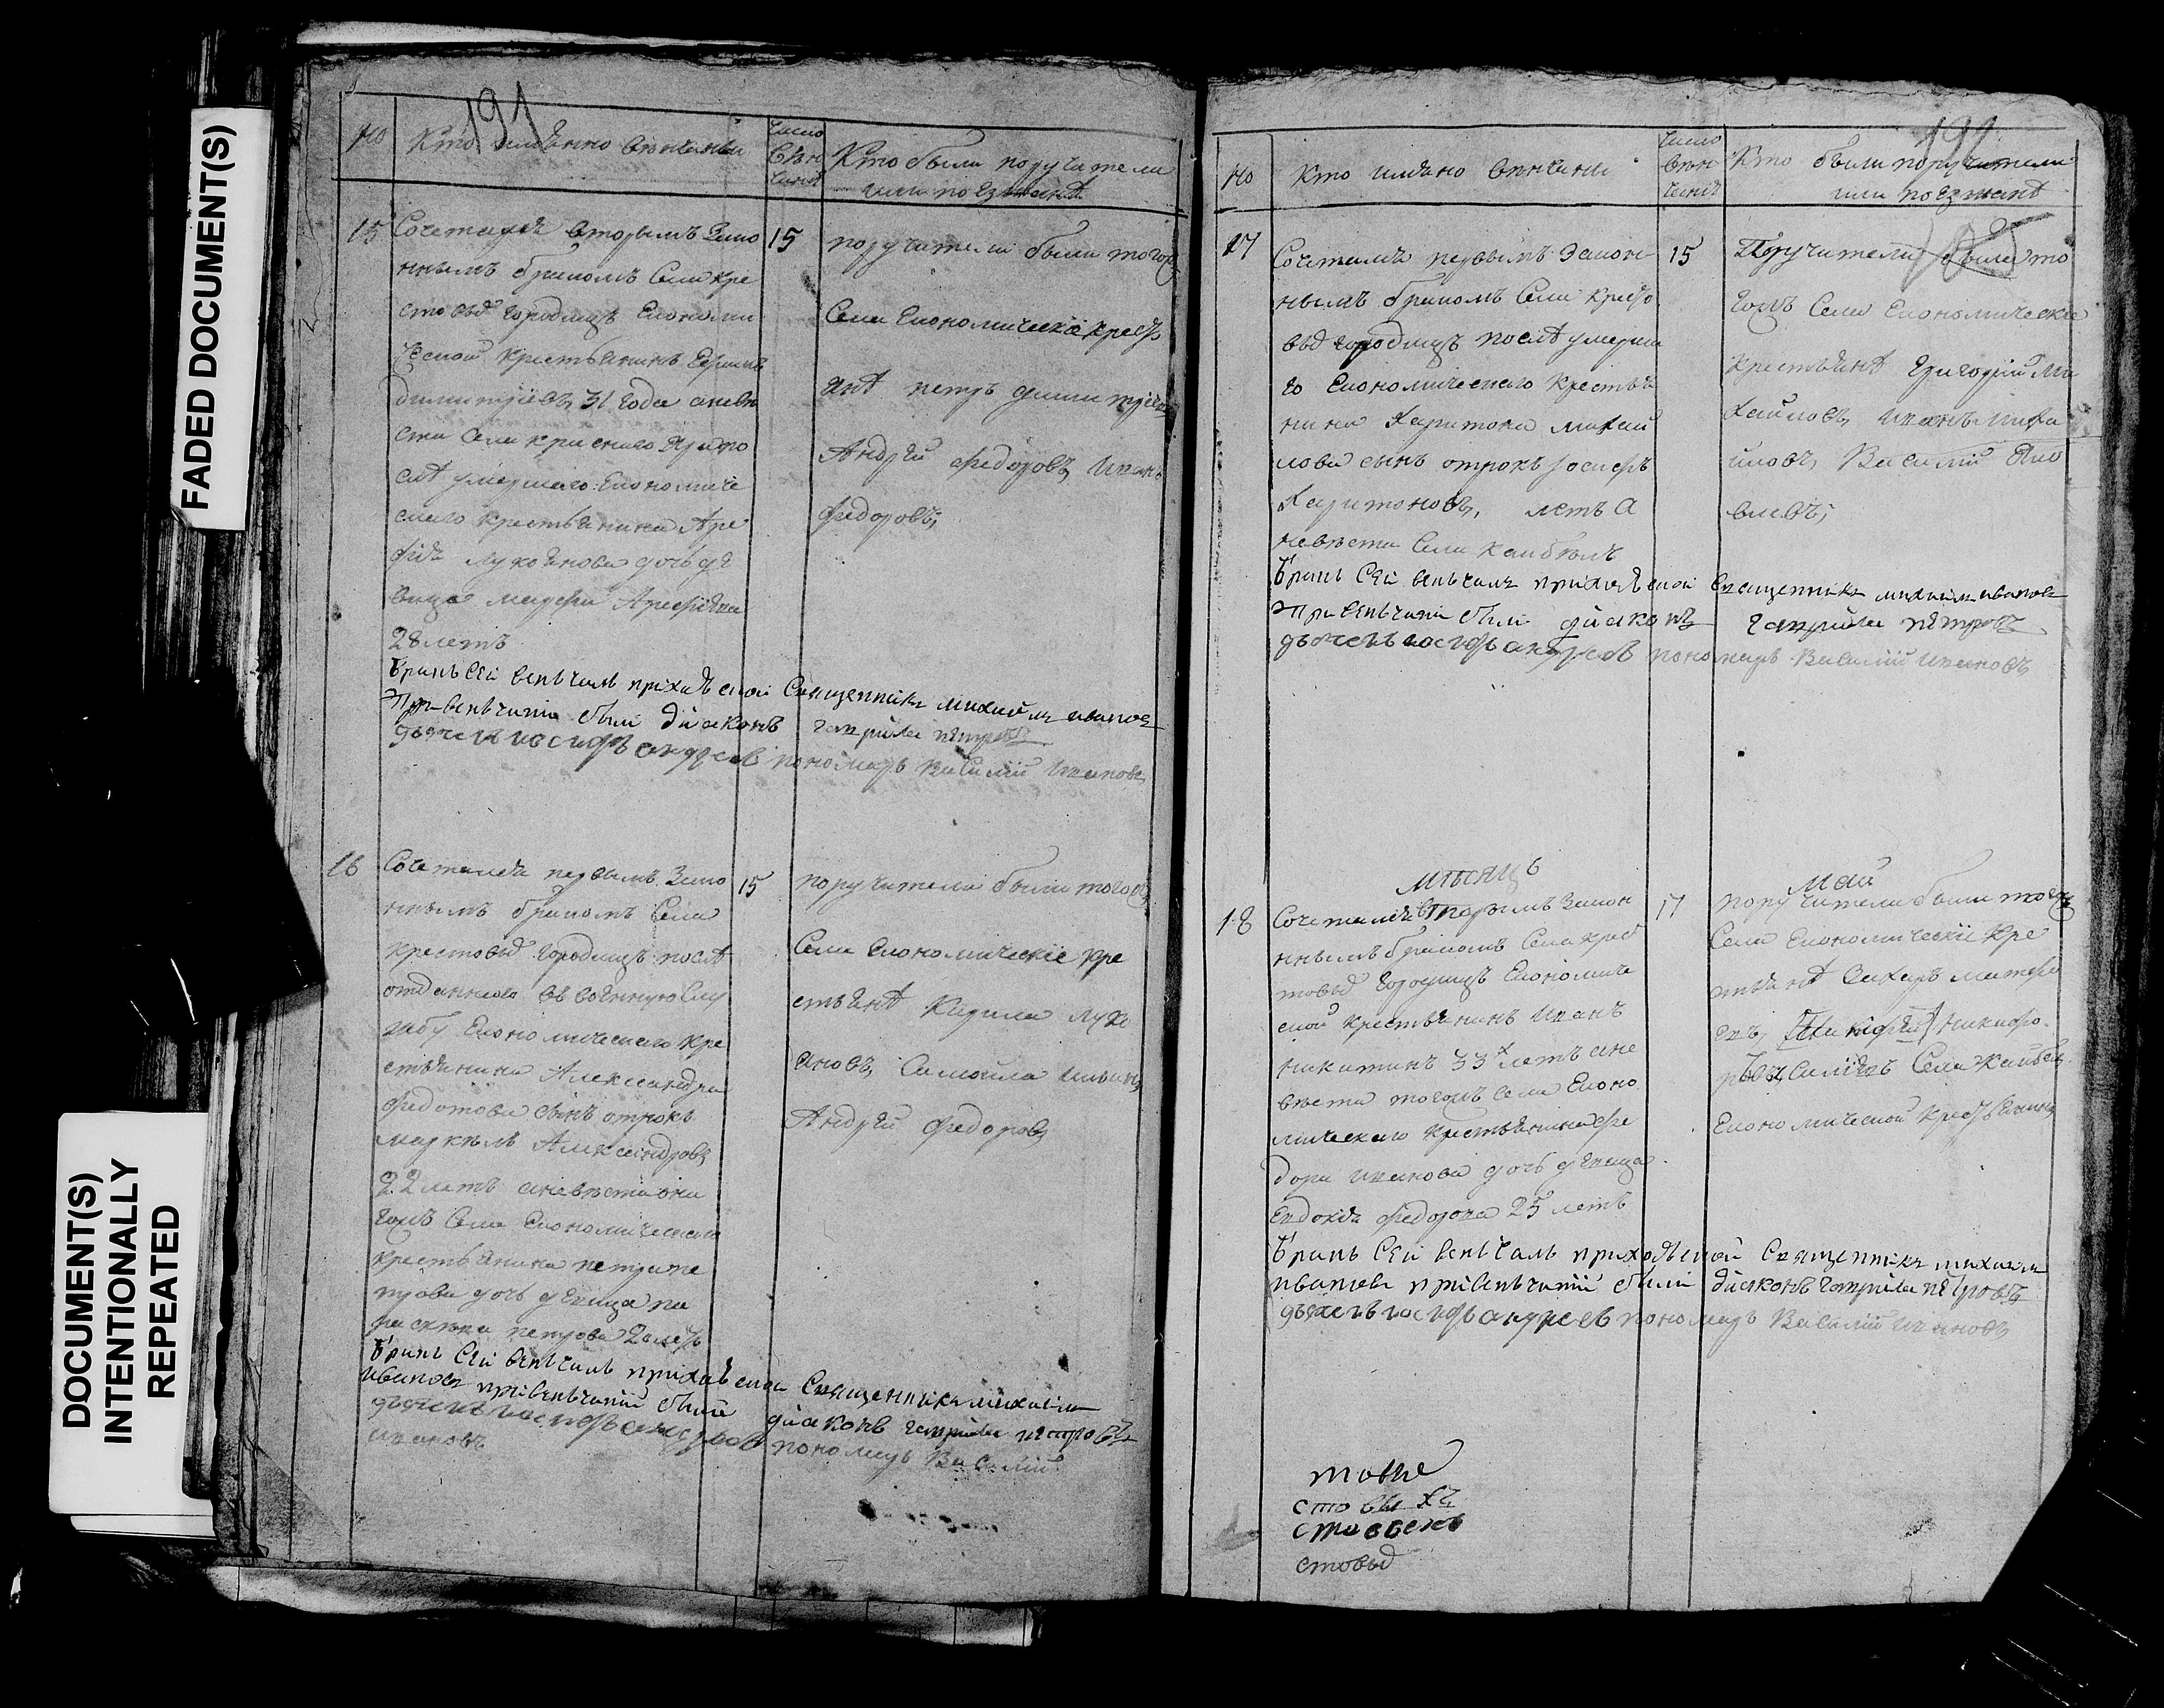 FADED DOCUMENT(S)
DOCUMENT(S)
INTENTIONALLY
REPEATED
191
No
Кто имѣнно венчаны
число
вѣн
чанiя
Кто были поручители
или поезжанѣ
15
Сочетался вторымъ зако
ннымъ бракомъ Села Кре
стовыхъ городищъ Економи
ческой крестьянинъ
димитрiевъ 31 года а невѣ
ста Села краснаго Яру по
слѣ умершаго Економиче
скаго крестьянина Аре
фiя Лукоянова дочь дѣ
вица марфа Арефiева
28 летъ
15
поручители были того
Села Економическiе крест
янѣ петръ димитрiевъ
Андрей федоровъ Иванъ
федоровъ
Бракъ сей венчалъ приходской Священникъ михайла ивановъ
При венчанiи были дiаконъ гаврила петровъ
дьячекъ иосифъ андреевъ пономарь Василiй Ивановъ
16
Сочетался первымъ зако
ннымъ бракомъ Села
крестовыхъ городищъ послѣ
отданнаго въ военную слу
жбу Економическаго кре
стьянина Александра
федотова сынъ отрокъ
маркелъ Александровъ
22 летъ а невѣста она
гожъ Села Економическаго
крестьянина петра пе
трова дочь девица па
раскева петрова 20 летъ
15
поручители были того
Села Економическiе кре
стьянѣ Кирила лукo
яновъ, Самойла ильинъ
Андрей федоровъ
Бракъ сей венчалъ приходской Священникъ михайла
ивановъ при венчанiи были дiаконъ гаврила петровъ
дьячекъ иосифъ андреевъ пономарь Василiй
ивановъ
191
No
Кто имѣно венчани
число
вѣн
чанiя
Кто были поручители
или поезжанѣ
17
Сочетался первымъ закон
нымъ бракомъ Села Кресто
выхъ городищъ послѣ умерша
го Економическаго крестья
нина Харитона михай
лова сынъ отрокъ Iосифъ
Харитоновъ, летъ а
невѣста Села Каибелъ
15
Поручители были то
гожъ Села Економическiе
крестьянѣ григорiй ми
хайловъ, иванъ миха
йловъ, Василiй Яко
влевъ,
Бракъ сей венчалъ приходской священникъ михайла ивановъ
При венчанiи были дiаконъ гаврила петровъ
дьячекъ иосифъ андреевъ пономарь Василiй Ивановъ
мѣсяцъ
май
18
Сочетался вторымъ закон
ннымъ бракомъ Села Крес
товыхъ городищъ Економиче
ской крестьянинъ Иванъ
никитинъ 33 летъ а не
вѣста тогожъ села Еконо
мическаго крестьянина фе
дора иванова дочь девица
Евдокiя федорова 25 летъ
17
поручители были того
Села Економическiе кре
стьянѣ Захаръ матфе
евъ, никифо
ровъ Села Каибелъ
Економической крестьянинъ
Бракъ сей венчалъ приходской Священникъ михайла
ивановъ при венчанiи были дiаконъ гаврила петровъ
дьячекъ иосифъ андреевъ пономарь Василiй ивановъ
стовыхъ
стовых